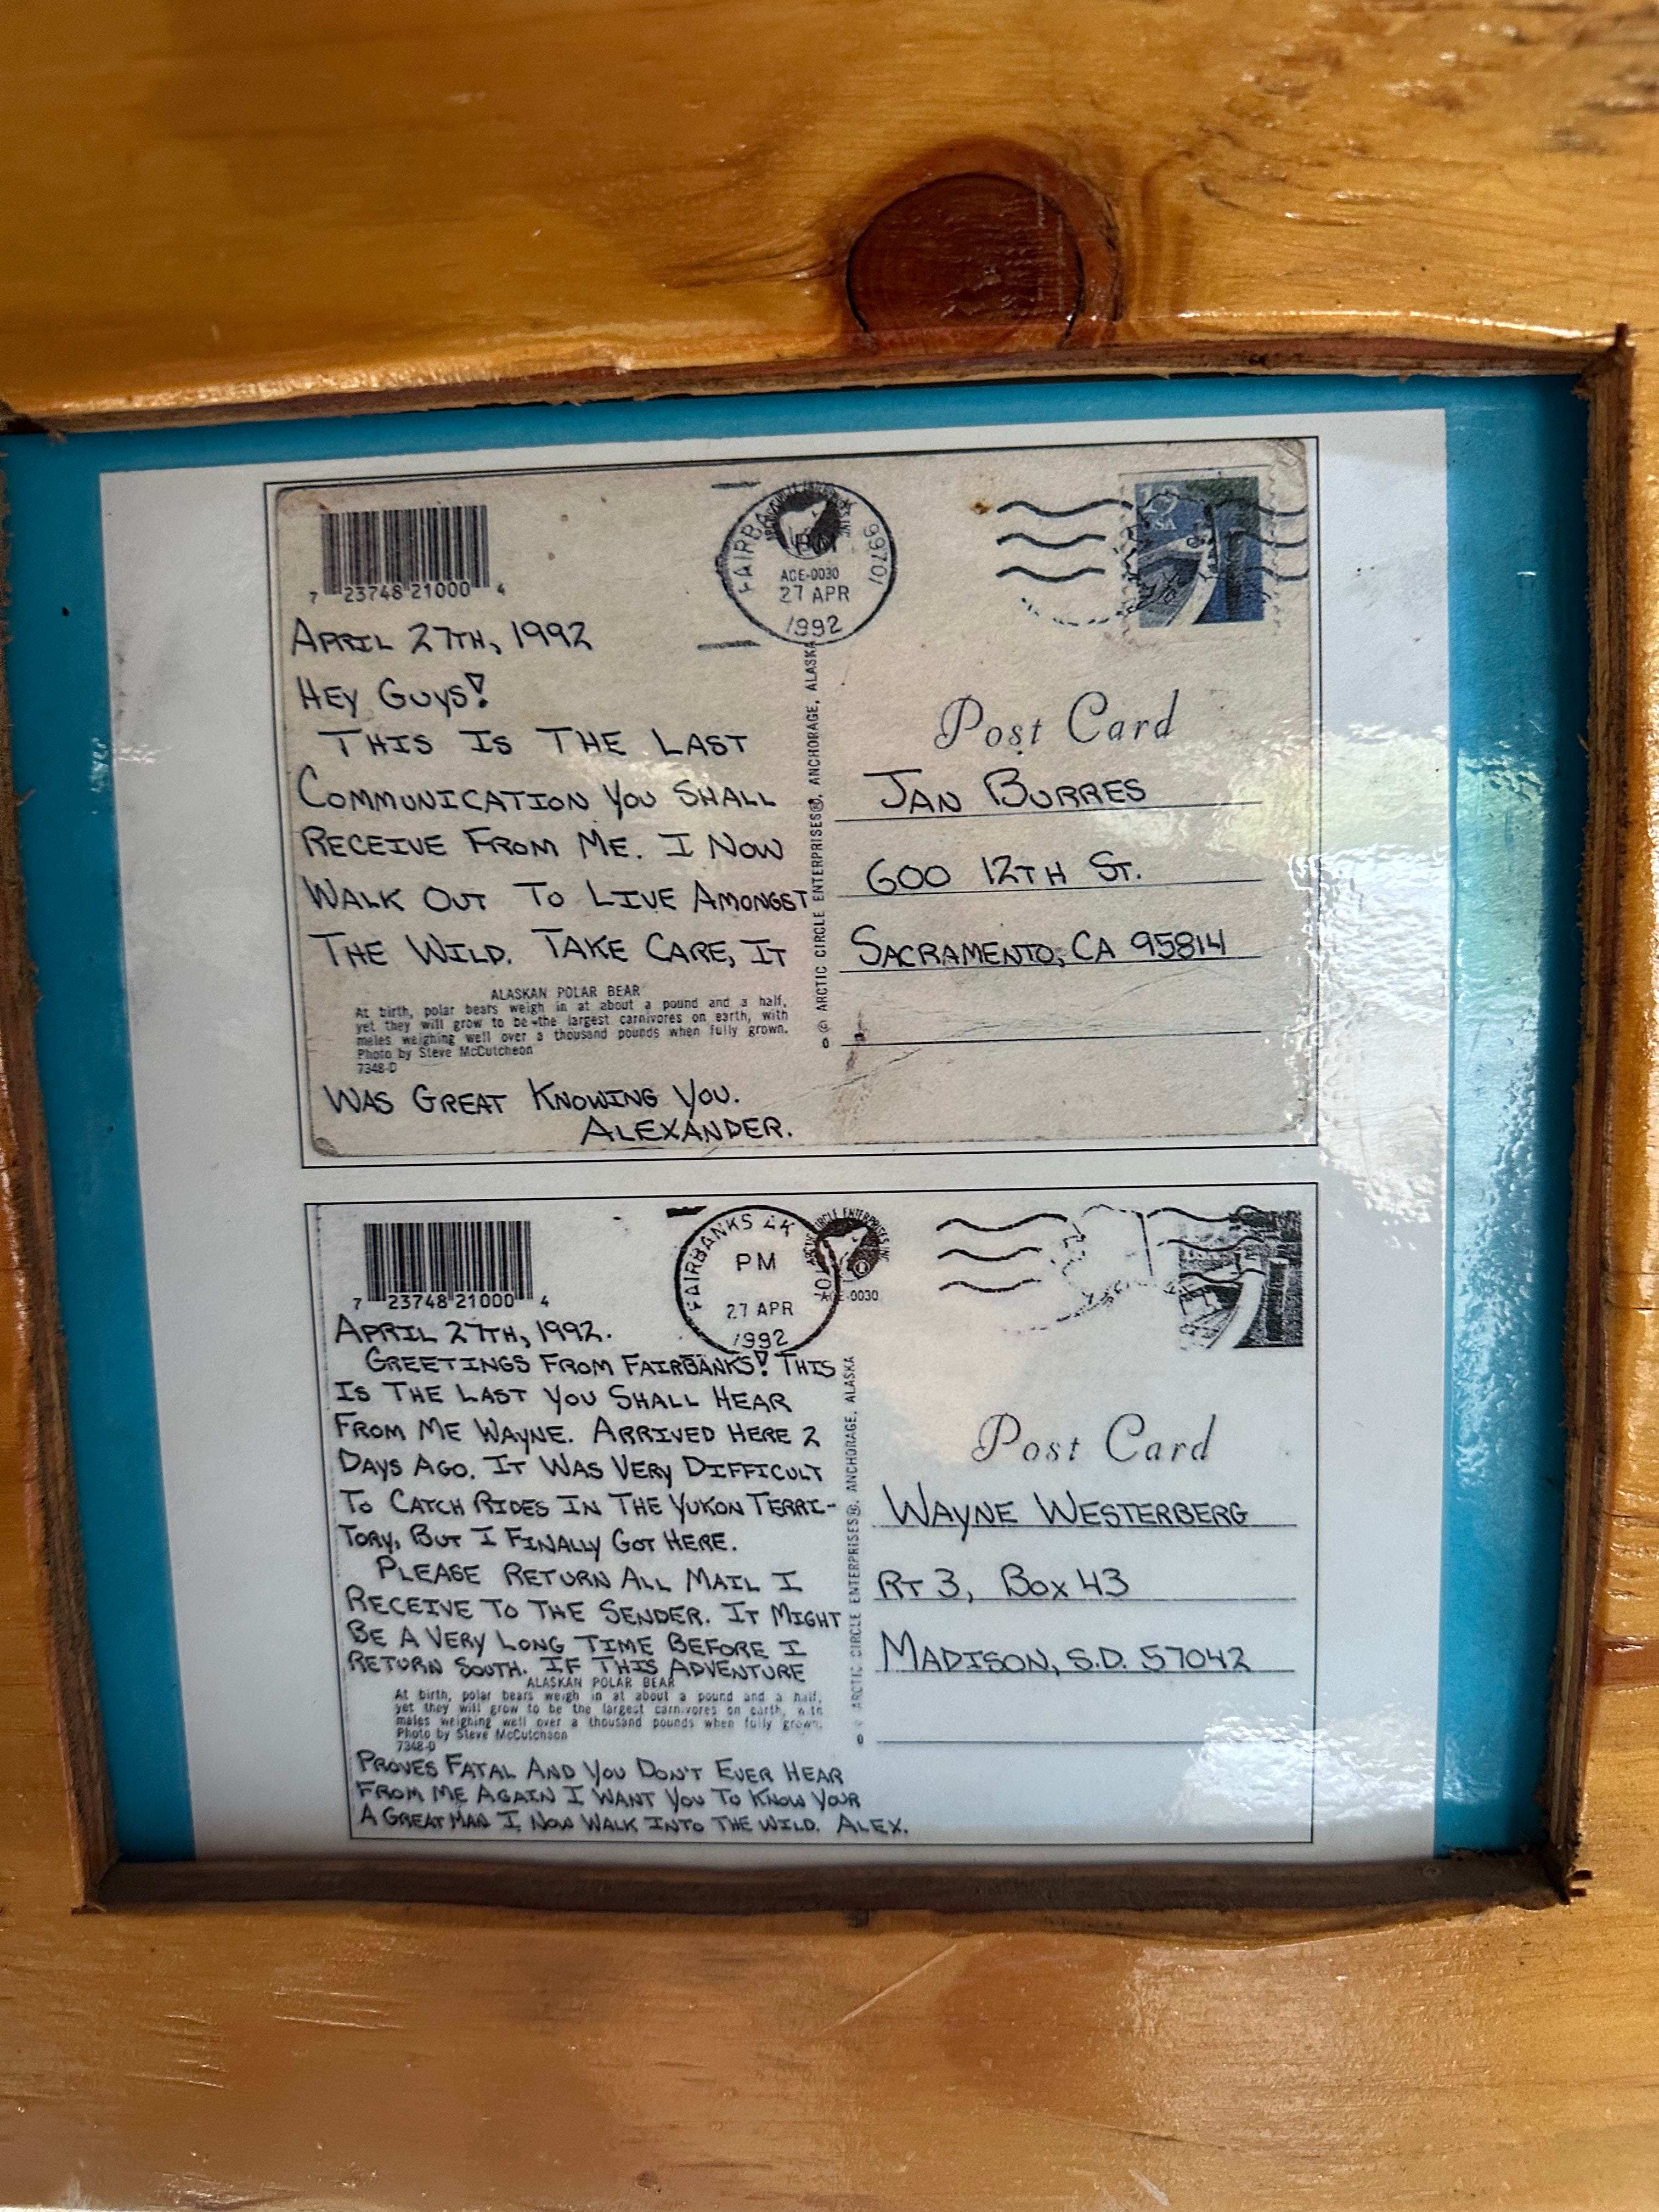 7 23748 21000 4
FAIRBA 99701
PM
ACE-0030
27 APR
1992
29
USA
APRIL 27TH, 1992
HEY GUYS!
THIS IS THE LAST
COMMUNICATION YOU SHALL
RECEIVE FROM ME. I NOW
WALK OUT TO LIVE AMONGST
THE WILD. TAKE CARE, IT
ALASKAN POLAR BEAR
At birth, polar bears weigh in at about a pound and a half,
yet they will grow to be the largest carnivores on earth, with
males weighing well over a thousand pounds when fully grown.
Photo by Steve McCutcheon
7348-D
WAS GREAT KNOWING YOU.
ALEXANDER.
© ARCTIC CIRCLE ENTERPRISES®, ANCHORAGE, ALASKA
Post Card
JAN BURRES
600 12TH ST.
SACRAMENTO, CA 95814
7 23748 21000 4
FAIRBANKS AK
PM
27 APR
1992
CIRCLE ENTERPRISES INC
ACE-0030
APRIL 27TH, 1992.
GREETINGS FROM FAIRBANKS! THIS
IS THE LAST YOU SHALL HEAR
FROM ME WAYNE. ARRIVED HERE 2
DAYS AGO. IT WAS VERY DIFFICULT
TO CATCH RIDES IN THE YUKON TERRI-
TORY, BUT I FINALLY GOT HERE.
PLEASE RETURN ALL MAIL I
RECEIVE TO THE SENDER. IT MIGHT
BE A VERY LONG TIME BEFORE I
RETURN SOUTH. IF THIS ADVENTURE
ALASKAN POLAR BEAR
At birth, polar bears weigh in at about a pound and a half,
yet they will grow to be the largest carnivores on earth, with
males weighing well over a thousand pounds when fully grown.
Photo by Steve McCutcheon
7348-D
PROVES FATAL AND YOU DON'T EVER HEAR
FROM ME AGAIN I WANT YOU TO KNOW YOUR
A GREAT MAN I NOW WALK INTO THE WILD. ALEX.
ARCTIC CIRCLE ENTERPRISES®, ANCHORAGE, ALASKA
Post Card
WAYNE WESTERBERG
RT 3, BOX 43
MADISON, S.D. 57042